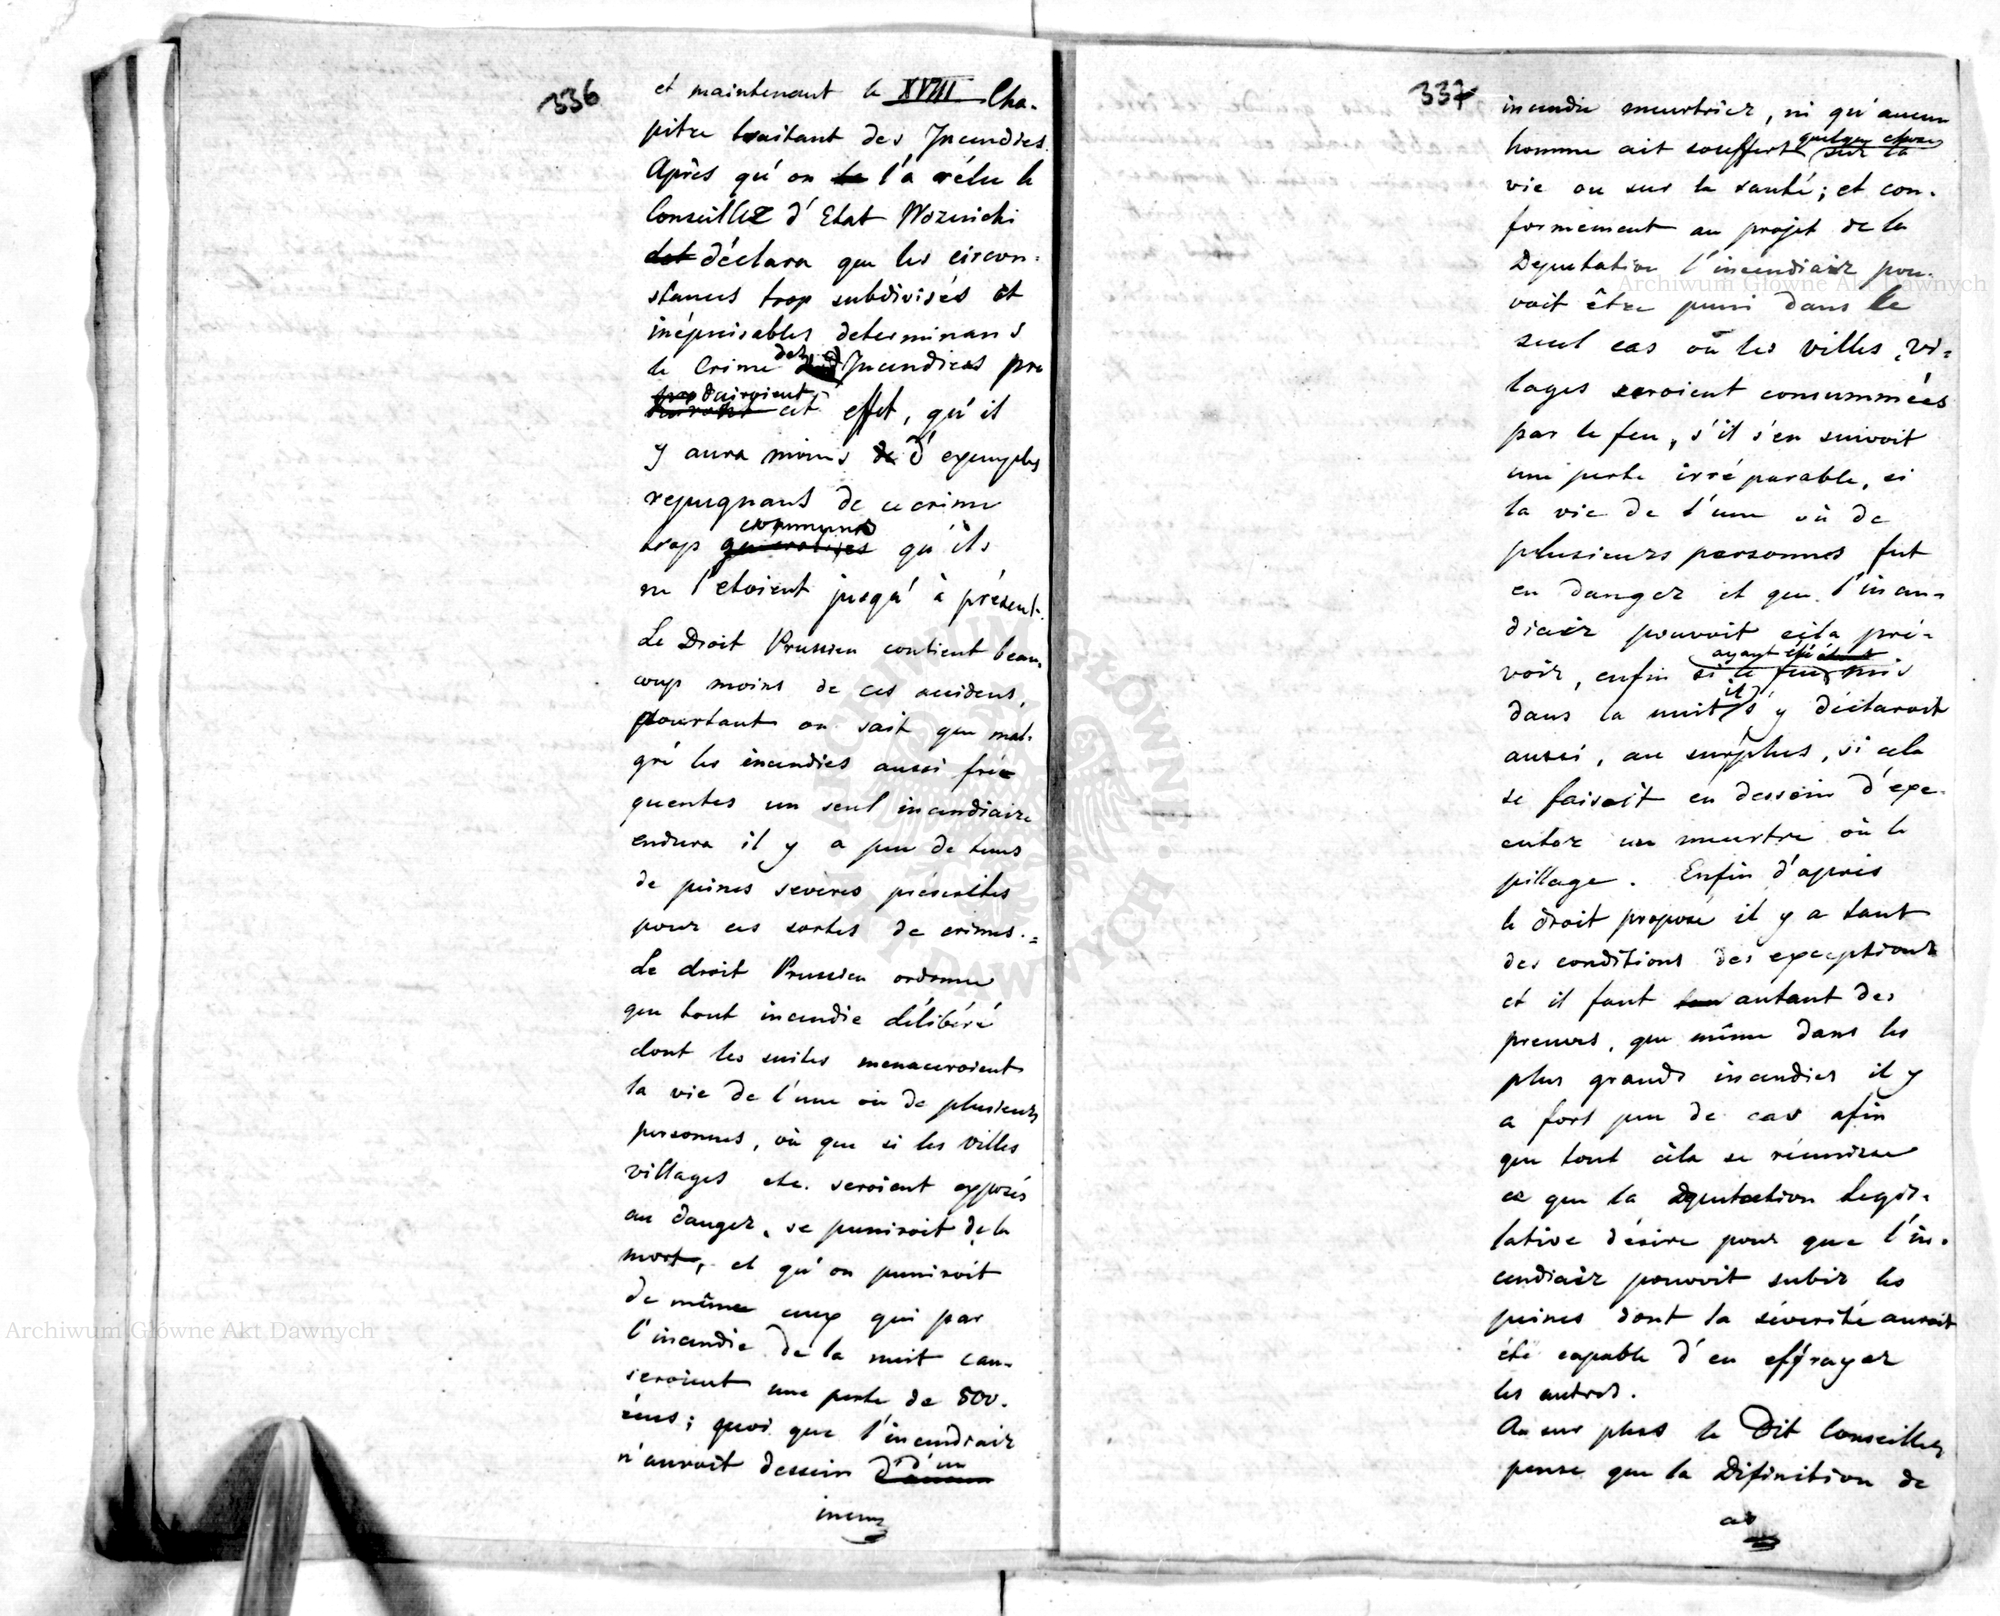 336
et maintenant le XVIII Cha-
pitre traitant des Incendies.
Après qu'on le l'a rélu le
Conseiller d'Etat Woznicki
det déclara que les circon-
stances trop subdivisés et
inépuisables determinans
le Crime des Incendies pro
produiroient
cet effet, qu'il
y aura moins de d'exemples
repugnans de ce crime
communs
trop generalises qu'ils
ne l'etoient jusqu'à présent.
Le Droit Prussien contient beau-
coup moins de ces accidens,
pourtant on sait que mal-
gré les incendies aussi fré
quentes un seul incendiaire
endura il y a peu de tems
de peines sevères préscrites
pour ces sortes de crimes.=
Le droit Prussien ordonne
que tout incendie délibéré
dont les suites menaceroient
la vie de l'une ou de plusieurs
personnes, où que si les villes
villages etc. seroient exposés
au danger, se puniroit de la
mort, et qu'on puniroit
de même ceux qui par
l'incendie de la nuit cau-
seroient une perte de 500.
écus; quoi que l'incendiair
n'auroit dessein d'un
d'aucun
incen
337
incendie meurtrier, ni qu'aucun
homme ait souffert quelque chose
sur la
vie ou sur la santé; et con-
formement au projet de la
Deputation l'incendiair pou-
voit être puni dans le
seul cas où les villes, vi-
lages seroient consummées
par le feu, s'il s'en suivoit
une perte irréparable, si
la vie de l'une où de
plusieurs personnes fut
en danger et que l'incen-
diair pouvoit cela pré-
ayant été étant
voir, enfin si le feu mis
il
dans la nuit s'y déclaroit
aussi, au surplus, si cela
se faisoit en dessein d'exe-
cuter un meurtre où le
pillage. Enfin d'après
le droit proposé il y a tant
des conditions des exceptions
et il faut tan autant des
preuves, que même dans les
plus grands incendies il y
a fort peu de cas afin
que tout cèla se réunisse
ce que la députation Legis-
lative désire pour que l'in-
cendiair pouvoit subir les
peines dont la sévérité auroit
été capable d'en effrayer
les autres.
Au sur plus le Dit Conseiller
pense que la Difinition de
ce
Archiwum Główne Akt Dawnych
Archiwum Główne Akt Dawnych
ARCHIWUM GŁÓWNE AKT DAWNYCH